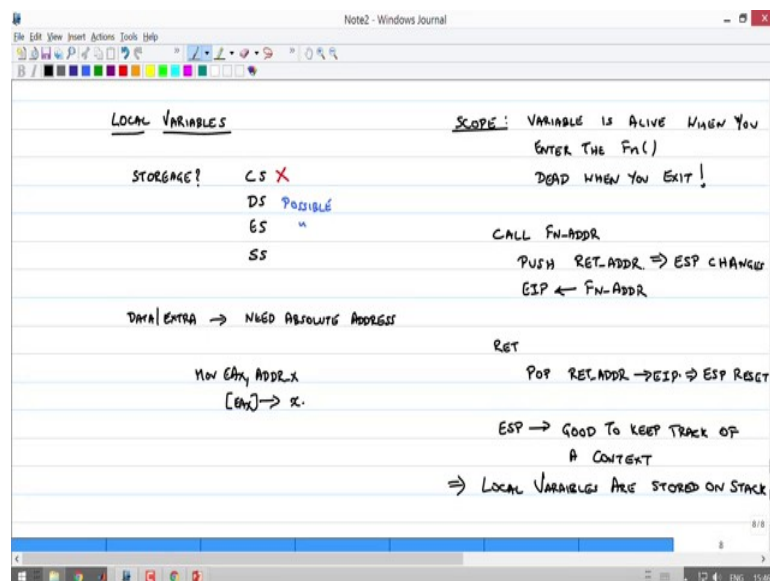 Note2 - Windows Journal
File Edit View Insert Actions Tools Help
B I
LOCAL VARIABLES
STOREAGE? CS X
DS POSSIBLE
ES "
SS
DATA/EXTRA → NEED ABSOLUTE ADDRESS
MOV EAX, ADDR_X
[EAX] → x.
SCOPE: VARIABLE IS ALIVE WHEN YOU
ENTER THE Fn()
DEAD WHEN YOU EXIT!
CALL FN-ADDR
PUSH RET_ADDR. ⇒ ESP CHANGES
EIP ← FN-ADDR
RET
POP RET_ADDR → EIP. ⇒ ESP RESET
ESP → GOOD TO KEEP TRACK OF
A CONTEXT
⇒ LOCAL VARAIBLES ARE STORED ON STACK
8/8
8
ENG